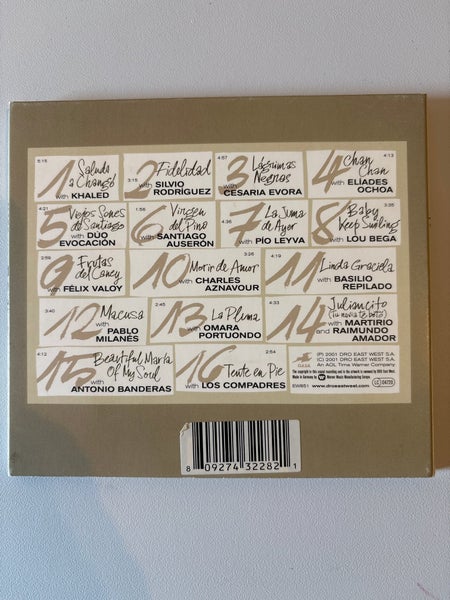 5:15
1 Saludo a Changó
with KHALED
2 Fidelidad
3:15
with SILVIO RODRÍGUEZ
4:57
3 Lágrimas Negras
with CESARIA EVORA
4:13
4 Chan Chan
with ELÍADES OCHOA
4:21
5 Viejos Sones de Santiago
with DÚO EVOCACIÓN
1:56
6 Virgen del Pino
with SANTIAGO AUSERÓN
4:36
7 La Juma de Ayer
with PÍO LEYVA
8 Baby Keep Smiling
with LOU BEGA
2:59
9 Frutas del Caney
with FÉLIX VALOY
3:26
10 Morir de Amor
with CHARLES AZNAVOUR
4:19
11 Linda Graciela
with BASILIO REPILADO
3:40
12 Macusa
with PABLO MILANÉS
2:45
13 La Pluma
with OMARA PORTUONDO
4:33
14 Juliancito
(Tu novia te botó)
with MARTIRIO
and RAIMUNDO AMADOR
4:12
15 Beautiful María Of My Soul
with ANTONIO BANDERAS
2:54
16 Tente en Pie
with LOS COMPADRES
(P) 2001 DRO EAST WEST S.A.
(C) 2001 DRO EAST WEST S.A.
An AOL Time Warner Company
The copyright in this sound recording and in the artwork is owned by DRO East West.
Made in Germany by Warner Music Manufacturing Europe.
www.droeastwest.com
LC 04720
8 09274 32282 1